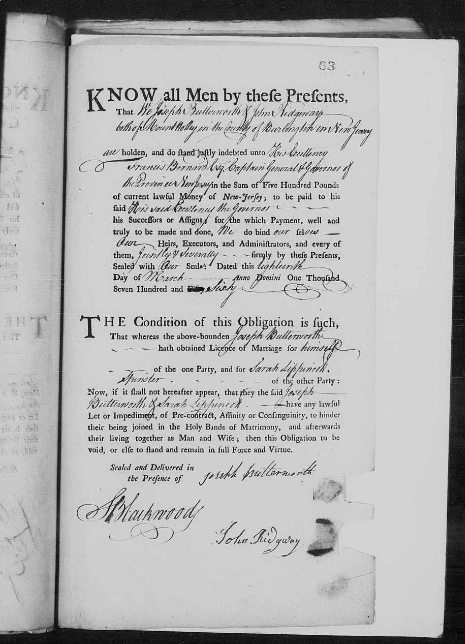 63
KNOW all Men by theſe Preſents,
That We Joseph Butterworth & John Ridgway
both of Mount Holly in the County of Burlington in New Jersey
are holden, and do ſtand juſtly indebted unto His Excellency
Francis Bernard Esq. Captain General & Governor of
the Province New Jersey in the Sum of Five Hundred Pounds
of current lawful Money of New-Jerſey; to be paid to his
ſaid His said Excellency the Governor
his Succeſſors or Aſſigns; for the which Payment, well and
truly to be made and done, We do bind our ſelves
Our Heirs, Executors, and Adminiſtrators, and every of
them, Jointly & Severally firmly by theſe Preſents,
Sealed with Our Seals; Dated this Eighteenth
Day of March Anno Domini One Thouſand
Seven Hundred and Sixty
THE Condition of this Obligation is ſuch,
That whereas the above-bounden Joseph Butterworth
hath obtained Licence of Marriage for himself
of the one Party, and for Sarah Lippincott
Spinster of the other Party:
Now, if it ſhall not hereafter appear, that they the ſaid Joseph
Butterworth & Sarah Lippincott have any lawful
Let or Impediment, of Pre-contract, Affinity or Conſanguinity, to hinder
their being joined in the Holy Bands of Matrimony, and afterwards
their living together as Man and Wife; then this Obligation to be
void, or elſe to ſtand and remain in full Force and Virtue.
Sealed and Delivered in
the Preſence of
Joseph Butterworth
Blackwood
John Ridgway